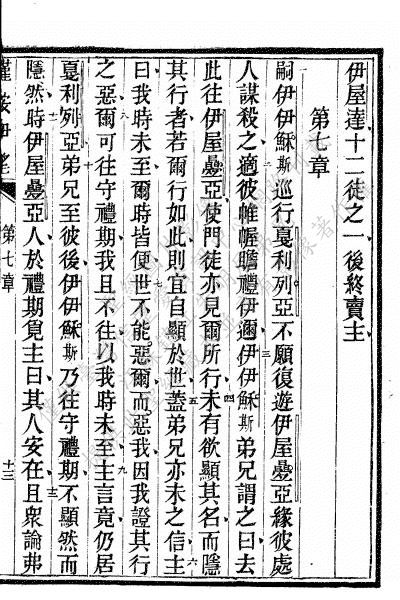 伊屋達十二徒之一後終賣主
第七章
嗣伊伊穌斯巡行戛利列亞不願復遊伊屋疊亞緣彼處
人謀殺之適彼帷幄瞻禮伊邇伊伊穌斯弟兄謂之曰去
此往伊屋疊亞使門徒亦見爾所行未有欲顯其名而隱
其行者若爾行如此則宜自顯於世蓋弟兄亦未之信主
曰我時未至爾時皆便世不能惡爾而惡我因我證其行
之惡爾可往守禮期我且不往以我時未至主言竟仍居
戛利列亞弟兄至彼後伊伊穌斯乃往守禮期不顯然而
隱然時伊屋疊亞人於禮期覓主曰其人安在且衆論弗
第七章
十三